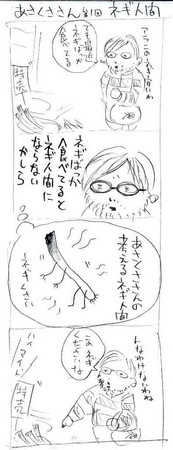 あさくささん 第1回 ネギ人間
アラ このネギ安いわ
でも最近
ネギばっか
食べてる
特売
ネギばっか
食べてると
ネギ人間に
ならない
かしら
あさくささんの
考えるネギ人間
ネギくさい
んなわけないわね
このネギ
くださいな
ハイ
マイド
特売